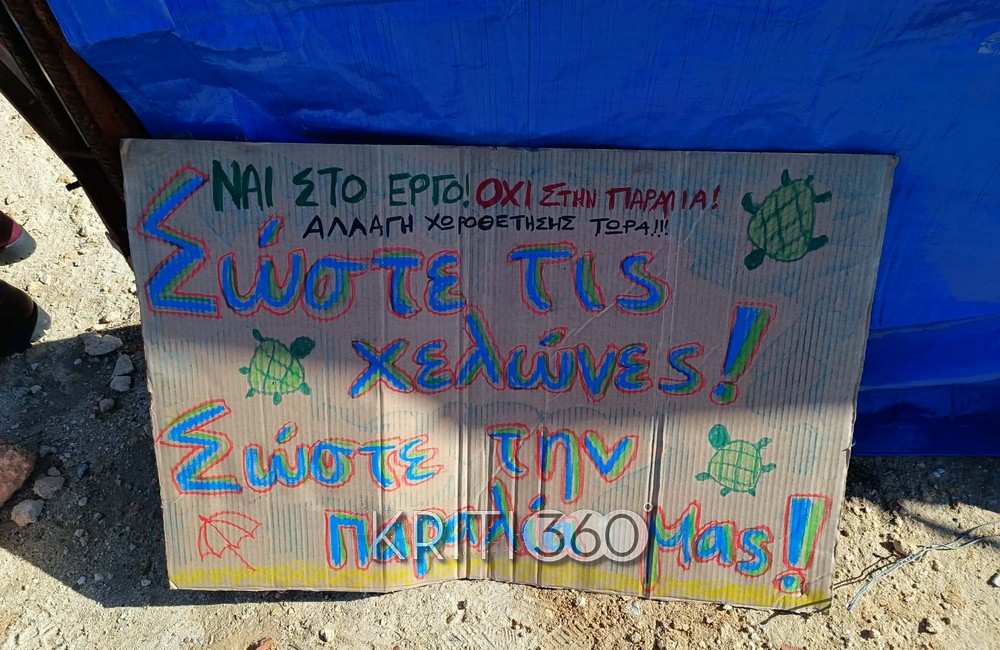 ΝΑΙ ΣΤΟ ΕΡΓΟ! ΟΧΙ ΣΤΗΝ ΠΑΡΑΛΙΑ!
ΑΛΛΑΓΗ ΧΩΡΟΘΕΤΗΣΗΣ ΤΩΡΑ!!!
Σώστε τις
χελώνες!
Σώστε την
παραλία μας!
KRITI360°